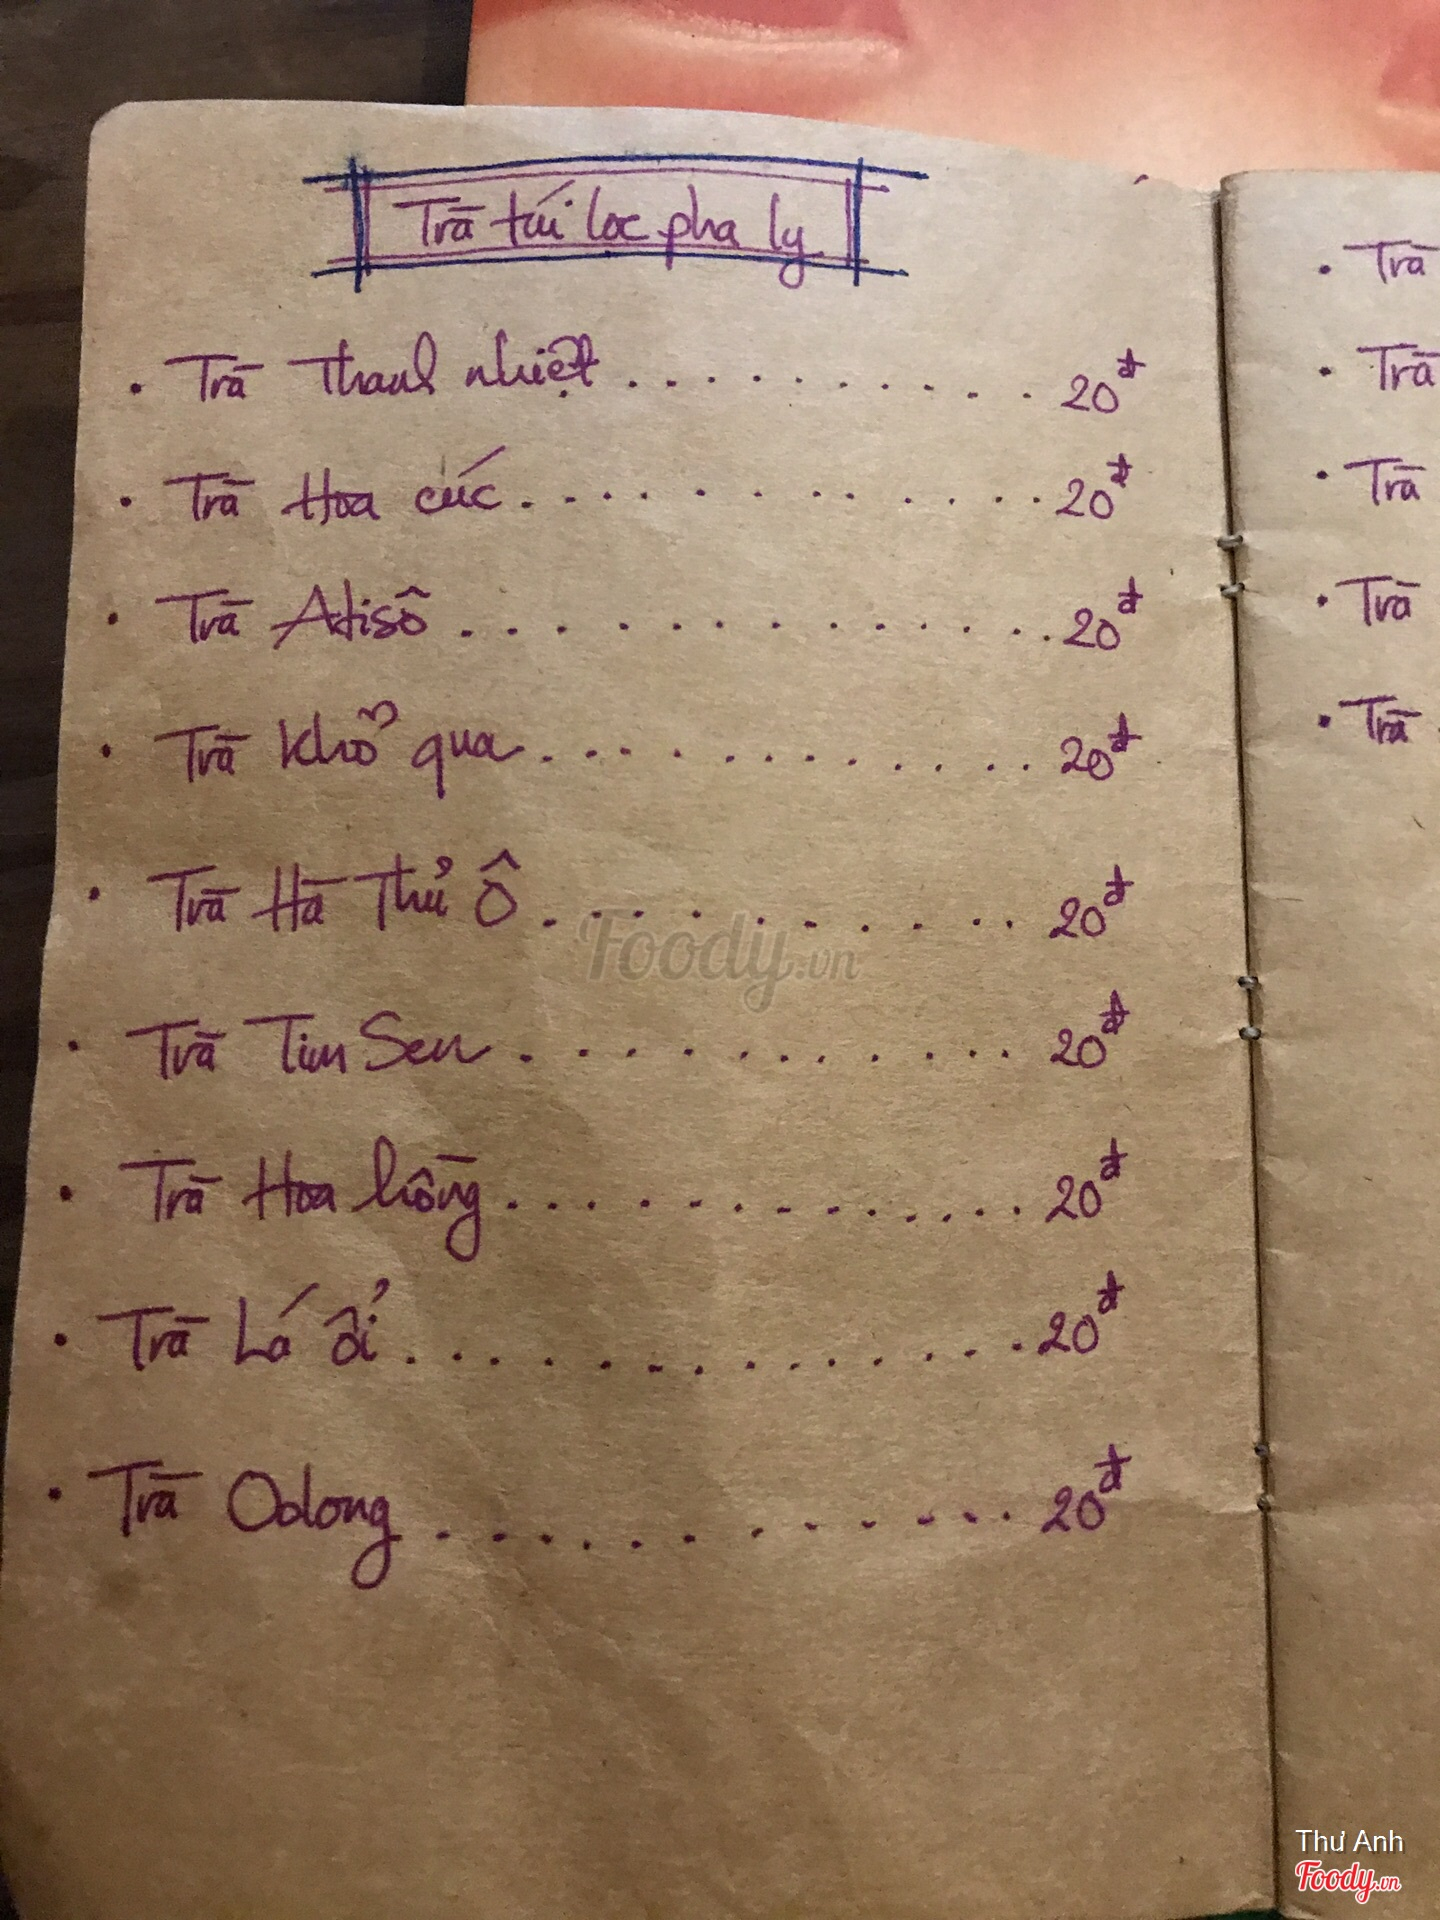 Trà túi lọc pha ly
• Trà Thanh nhiệt .......... 20đ
• Trà Hoa cúc .......... 20đ
• Trà Atisô .......... 20đ
• Trà Khổ qua .......... 20đ
• Trà Hà Thủ Ô .......... 20đ
• Trà Tim Sen .......... 20đ
• Trà Hoa hồng .......... 20đ
• Trà Lá ổi .......... 20đ
• Trà Oolong .......... 20đ
• Trà
• Trà
• Trà
• Trà
• Trà
Foody.vn
Thư Anh
Foody.vn